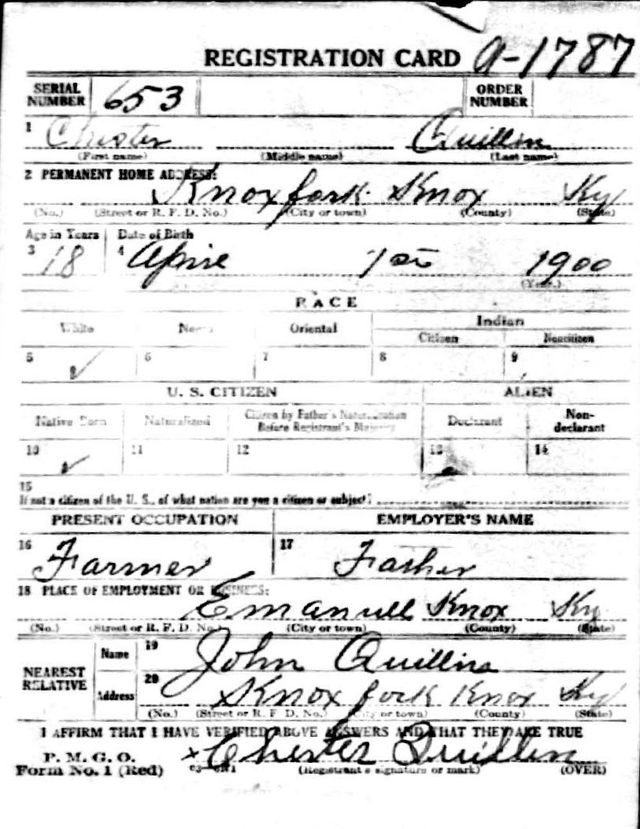 REGISTRATION CARD A-1787
SERIAL NUMBER 653 ORDER NUMBER
1 Chester Quillin
(First name) (Middle name) (Last name)
2 PERMANENT HOME ADDRESS:
Knoxfork Knox Ky
(No.) (Street or R. F. D. No.) (City or town) (County) (State)
Age in Years Date of Birth
3 18 4 Aprie 1st 1900
(Year.)
RACE
White Negro Oriental Indian
Citizen Noncitizen
5 ✓ 6 7 8 9
U. S. CITIZEN ALIEN
Native Born Naturalized Citizen by Father's Naturalization Before Registrant's Majority Declarant Non-declarant
10 ✓ 11 12 13 14
15
If not a citizen of the U. S., of what nation are you a citizen or subject?
PRESENT OCCUPATION EMPLOYER'S NAME
16 Farmer 17 Father
18 PLACE OF EMPLOYMENT OR BUSINESS:
Emanuell Knox Ky
(No.) (Street or R. F. D. No.) (City or town) (County) (State)
NEAREST RELATIVE Name 19 John Quillin
Address 20 Knox fork Knox Ky
(No.) (Street or R. F. D. No.) (City or town) (County) (State)
I AFFIRM THAT I HAVE VERIFIED ABOVE ANSWERS AND THAT THEY ARE TRUE
P. M. G. O. x Chester Quillin
Form No. 1 (Red) (Registrant's signature or mark) (OVER)